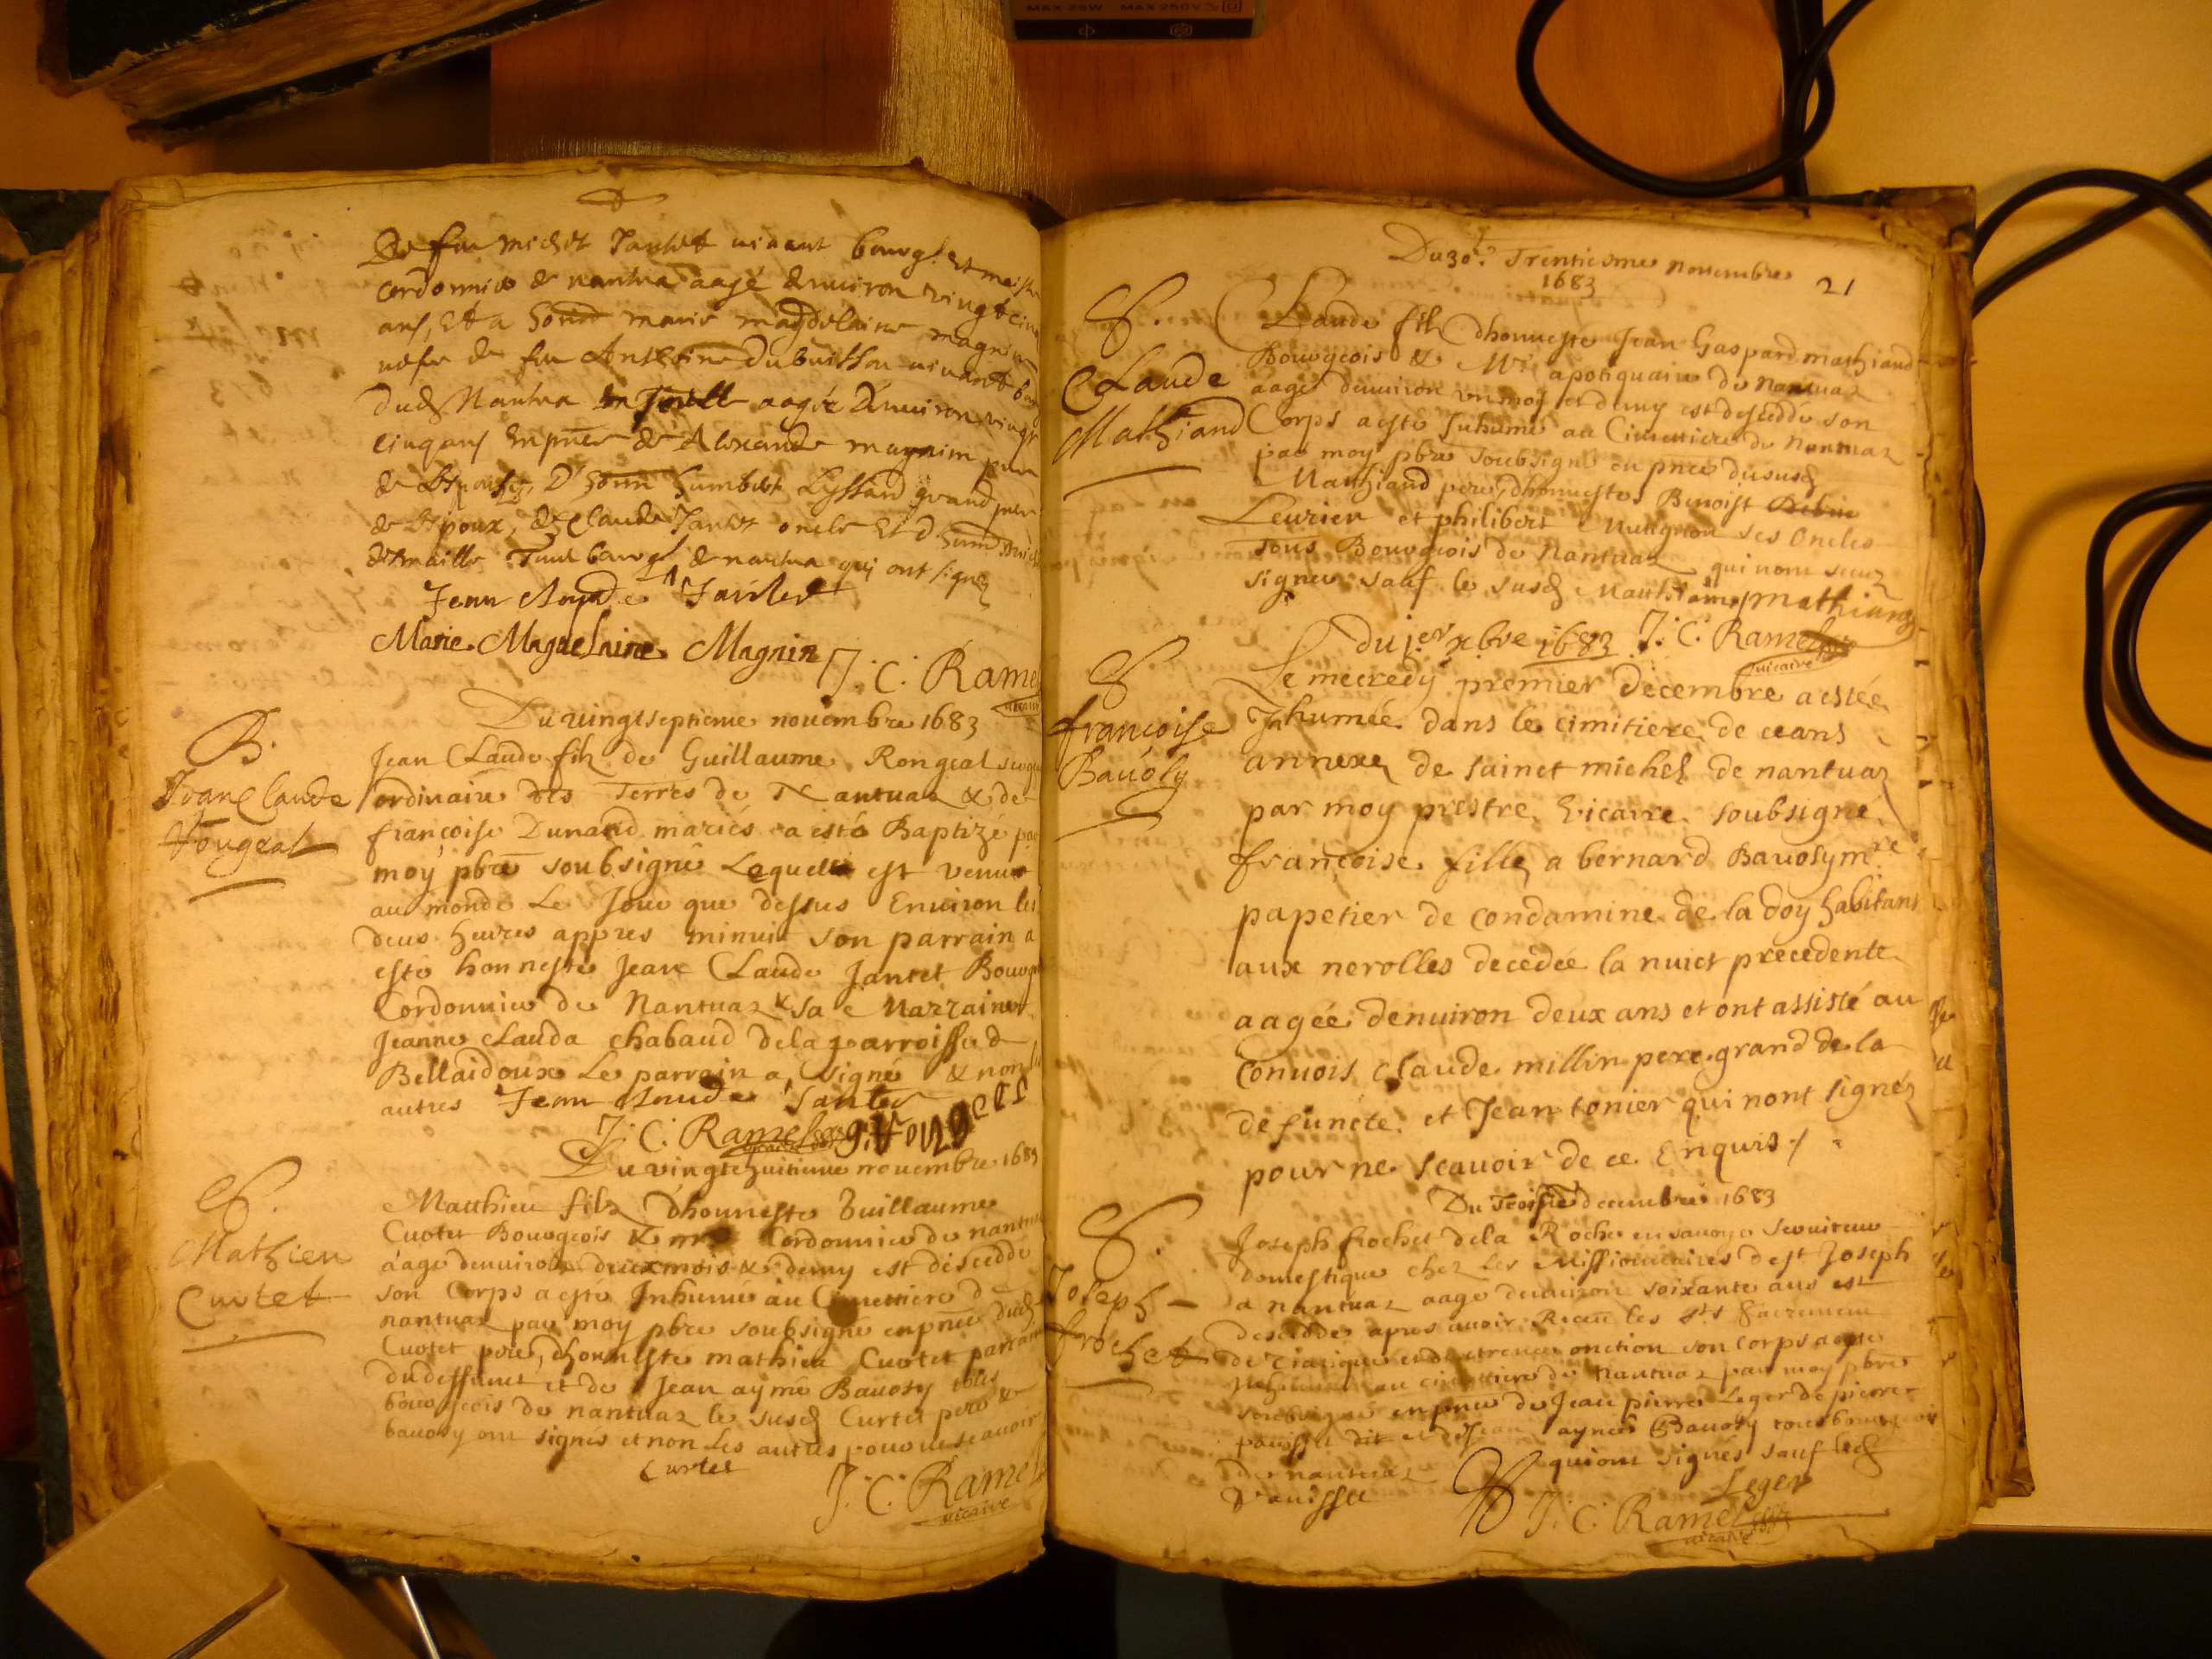 De feu michel Jantet vivant bourg. et maistre
cordonnier de nantua aagé denviron vingt cinq
ans, Et a honn marie magdelaine magnin
vefve de feu Anthoine Dubuisson vivant
dud Nantua aagée Denviron vingt
cinq ans En pnce de Alexandre magnin pere
de D honn humbert Lyssard grand pere
de Lepoux, de Claude Jantet oncle Et d
Tous bourg de nantua qui ont signez
Jean Claude Jantet
Marie Magdelaine Magnin J. C. Ramel
vicaire
Du vingtseptieme novembre 1683
B.
Jean Claude
Rougeat
Jean Claude fils de Guillaume Rongeat
ordinaire des Terres de Nantuaz & de
françoise Dunand mariés a esté Baptizé par
moy pbre soubsigné Lequel est venu
au monde Le Jour que dessus Environ les
deus heures appres minuit son parrain a
esté honneste Jean Claude Jantet Bourg
Cordonnier de Nantuaz & sa Marraine
Jeanne Clauda chabaud de la parroisse d
Bellaidoux Le parrain a signé & non les
autres Jean Claude Jantet
J. C. Ramel
Du vingt huitieme novembre 1683
S.
Mathieu
Curtet
Matthieu fils Dhonneste Guillaume
Curtet Bourgeois & mre Cordonnier de nantua
aagé denviron deux mois & demy est décedde
son Corps a esté Inhumé au Cimettiere de
nantuaz par moy pbre soubsigné en pnce dud
Curtet pere, dhonneste mathieu Curtet parrain
du deffunct et de Jean aymé Bavosy tous
bourgeois de nantuaz le susd Curtet pere &
bavosy ont signés et non Les autres pour ne scavoir
Curtet
J. C. Ramel
vicaire
Du 30e Trentiesme novembre
1683
21
S.
Claude
Mathiand
Claude fils dhonneste Jean Gaspard mathiand
Bourgeois & Mre apotiquaire de Nantuaz
aagé denviron un moy et demy est descedde son
Corps a esté Inhumé au Cimettiere de Nantuaz
par moy pbre soubsigné en pnce du susd
Mathiand pere, dhonnestes Benoist
Leurier et philibert ses Oncles
tous Bourgeois de Nantuaz qui nont sceuz
signer sauf le susd Mathiand mathiand
J. C. Ramel
vicaire
Du jer xbre 1683
S
françoise
Bavosy
Le mecredy premier decembre a estée
Jnhumée dans le cimitiere de ceans
annexe de sainct michel de nantuaz
par moy prestre Vicaire soubsigné
françoise fille a bernard Bavosy mre
papetier de condamine de la doy habitant
aux nerolles decedée la nuict precedente
aagée denviron deux ans et ont assisté au
convois claude millin pere grand de la
defuncte et Jean tonier qui nont signéz
pour ne scavoir de ce Enquis
Du Troise decembre 1683
S.
Joseph
frochet
Joseph frochet de la Roche en savoye serviteur
domestique chez Les Missionnaires de st Joseph
a nantuaz aagé denviron soixante ans est
descedde apres avoir Receu les sts Sacrements
de viatique et dextreme onction son Corps a esté
Inhumé au cimettiere de Nantuaz par moy pbre
soubsigné en pnce de Jean pierre Leger de pierre
dit et de Jean aymé Bavosy tous bourgeois
de nantuaz qui ont signés sauf led
Leger
J. C. Ramel
vicaire